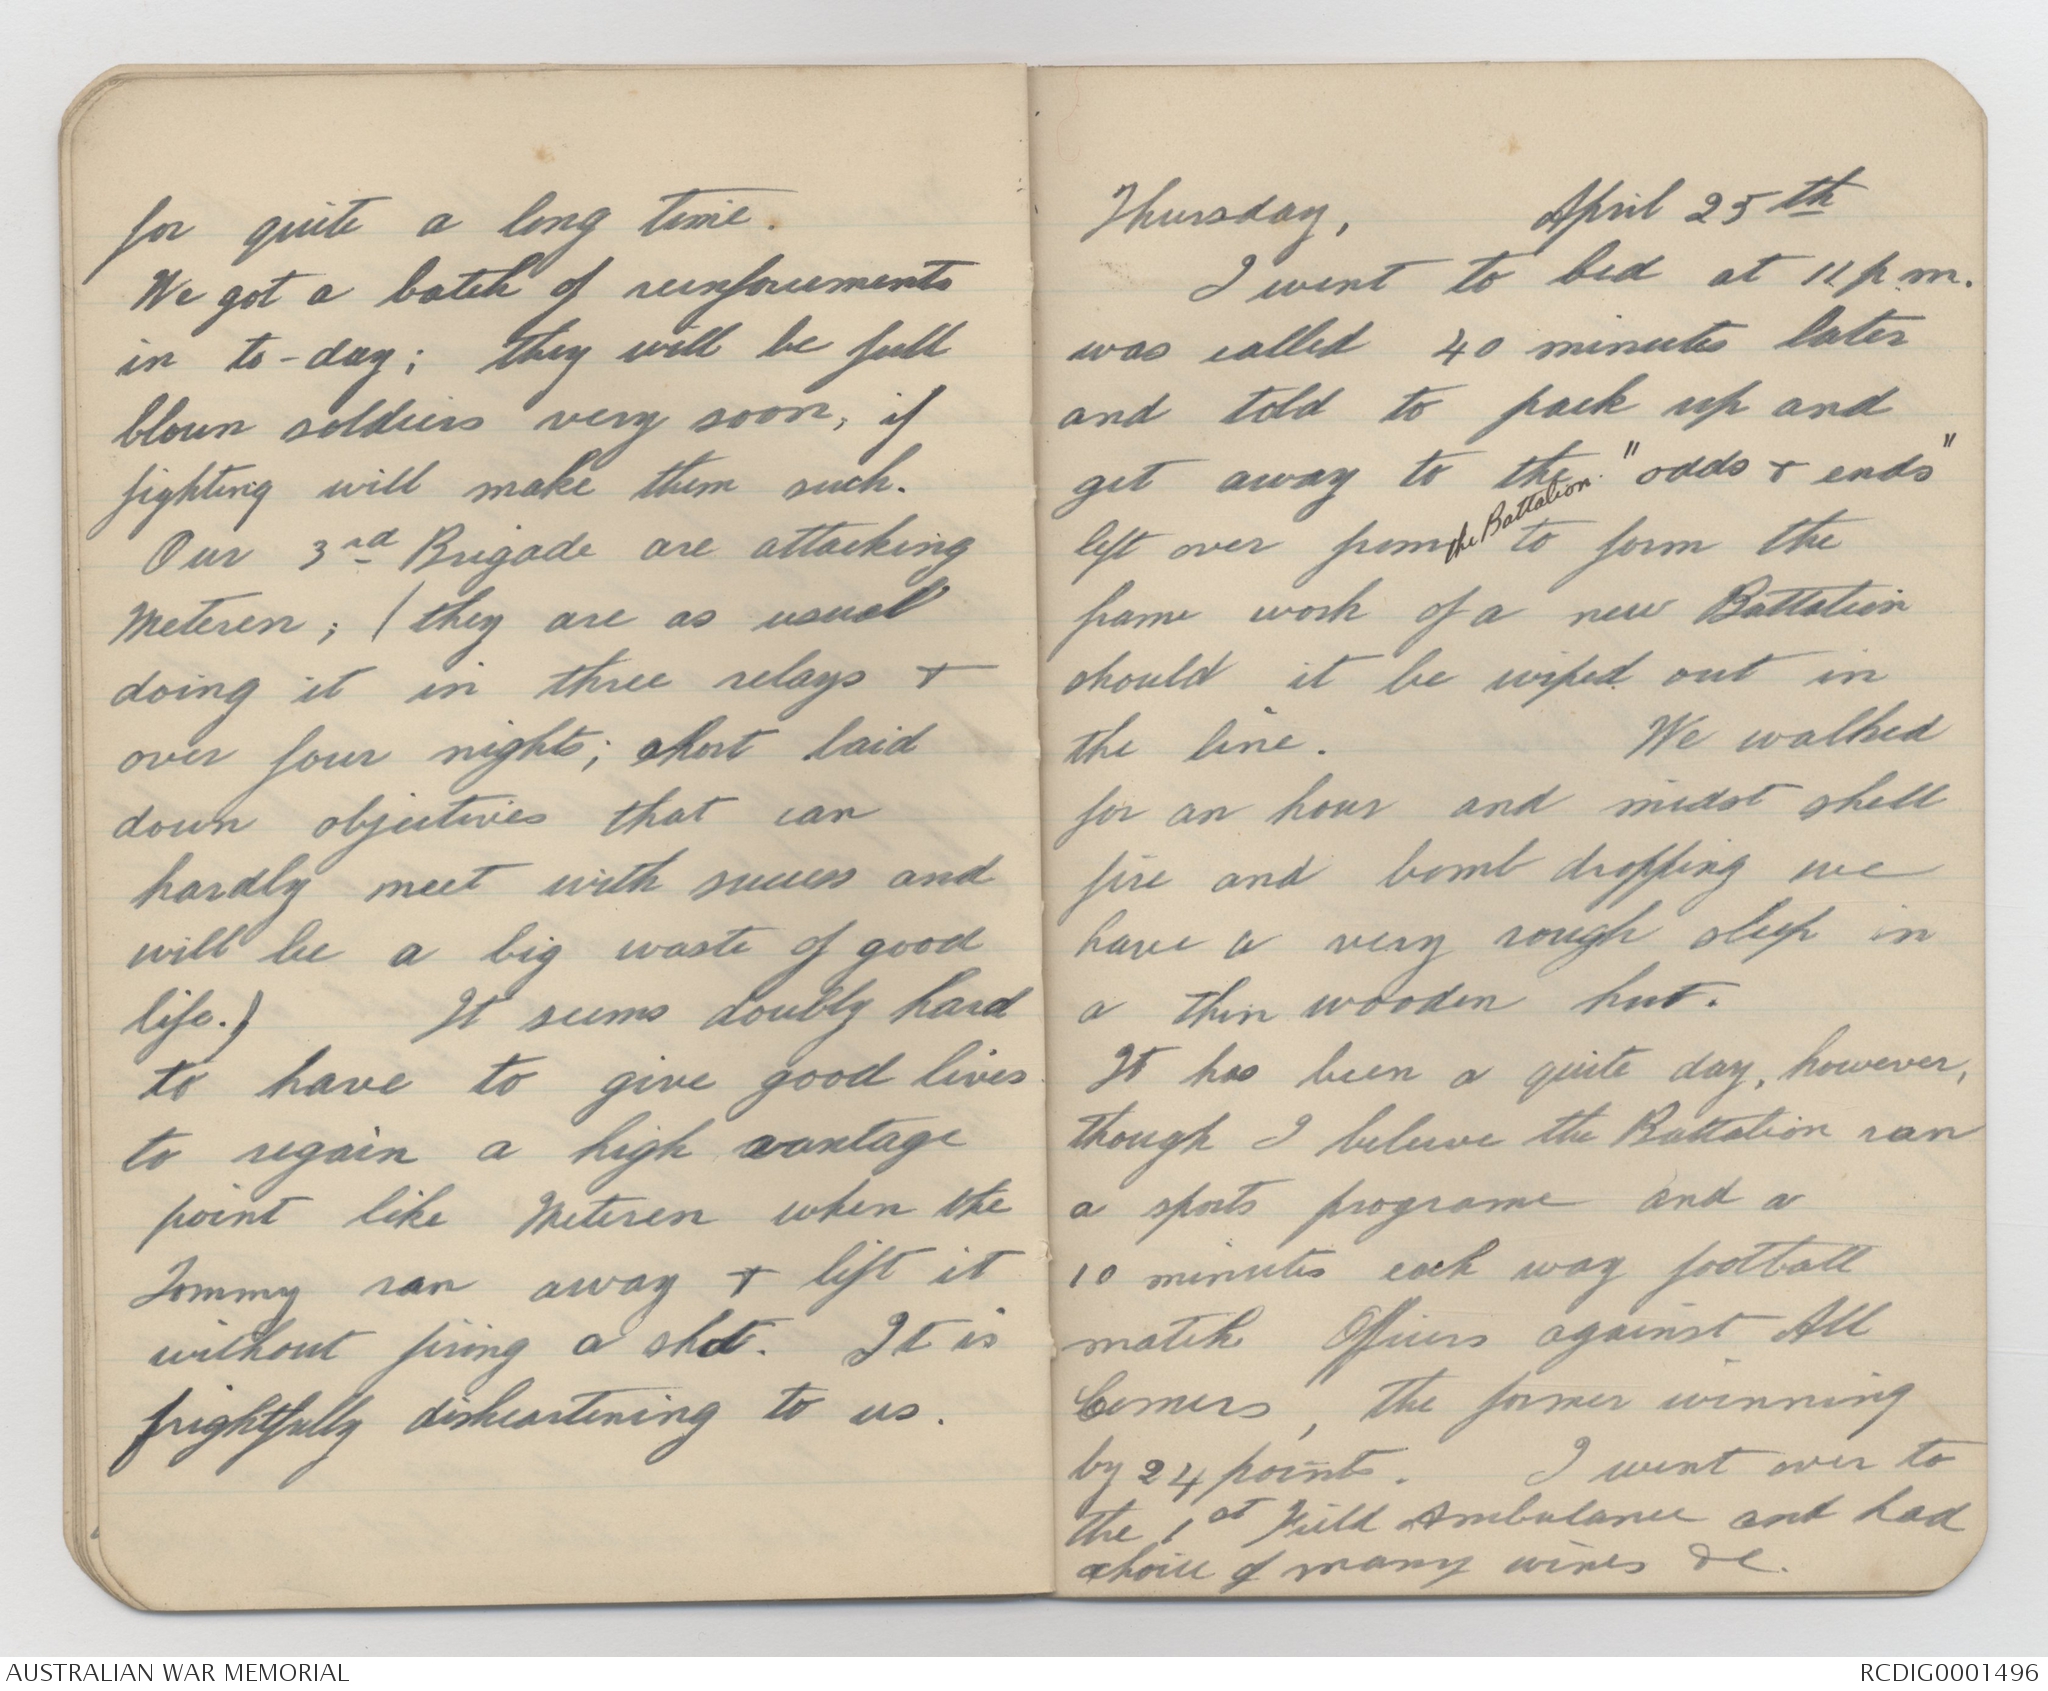 for quite a long time.
We got a batch of reinforcements
in to-day; they will be full
blown soldiers very soon, if
fighting will make them such.
Our 3rd Brigade are attacking
Meteren; (they are as usual
doing it in three relays +
over four nights; short laid
down objectives that can
hardly meet with success and
will be a big waste of good
life.) It seems doubly hard
to have to give good lives
to regain a high vantage
point like Meteren when the
Tommy ran away + left it
without firing a shot. It is
frightfully disheartening to us.
Thursday, April 25th
I went to bed at 11 p.m.
was called 40 minutes later
and told to pack up and
get away to the "odds + ends"
left over from the Battalion to form the
frame work of a new Battalion
should it be wiped out in
the line. We walked
for an hour and midst shell
fire and bomb dropping we
have a very rough sleep in
a thin wooden hut.
It has been a quite day, however,
though I beleive the Battalion ran
a sports programe and a
10 minutes each way football
match Officers against All
Comers, the former winning
by 24 points. I went over to
the 1st Field Ambulance and had
choice of many wines &c.
AUSTRALIAN WAR MEMORIAL
RCDIG0001496